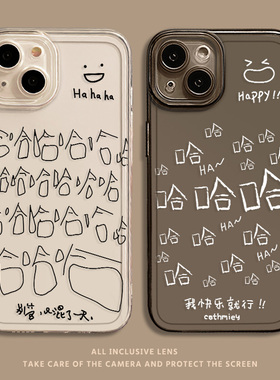 Ha ha ha
哈哈哈哈
哈哈哈哈哈
哈哈哈哈
哈哈哈
Happy!!
哈
哈 哈
HA~
哈 哈 哈
HA~
哈 哈
哈 哈
我快乐就行!!
cathmiey
ALL INCLUSIVE LENS
TAKE CARE OF THE CAMERA AND PROTECT THE SCREEN